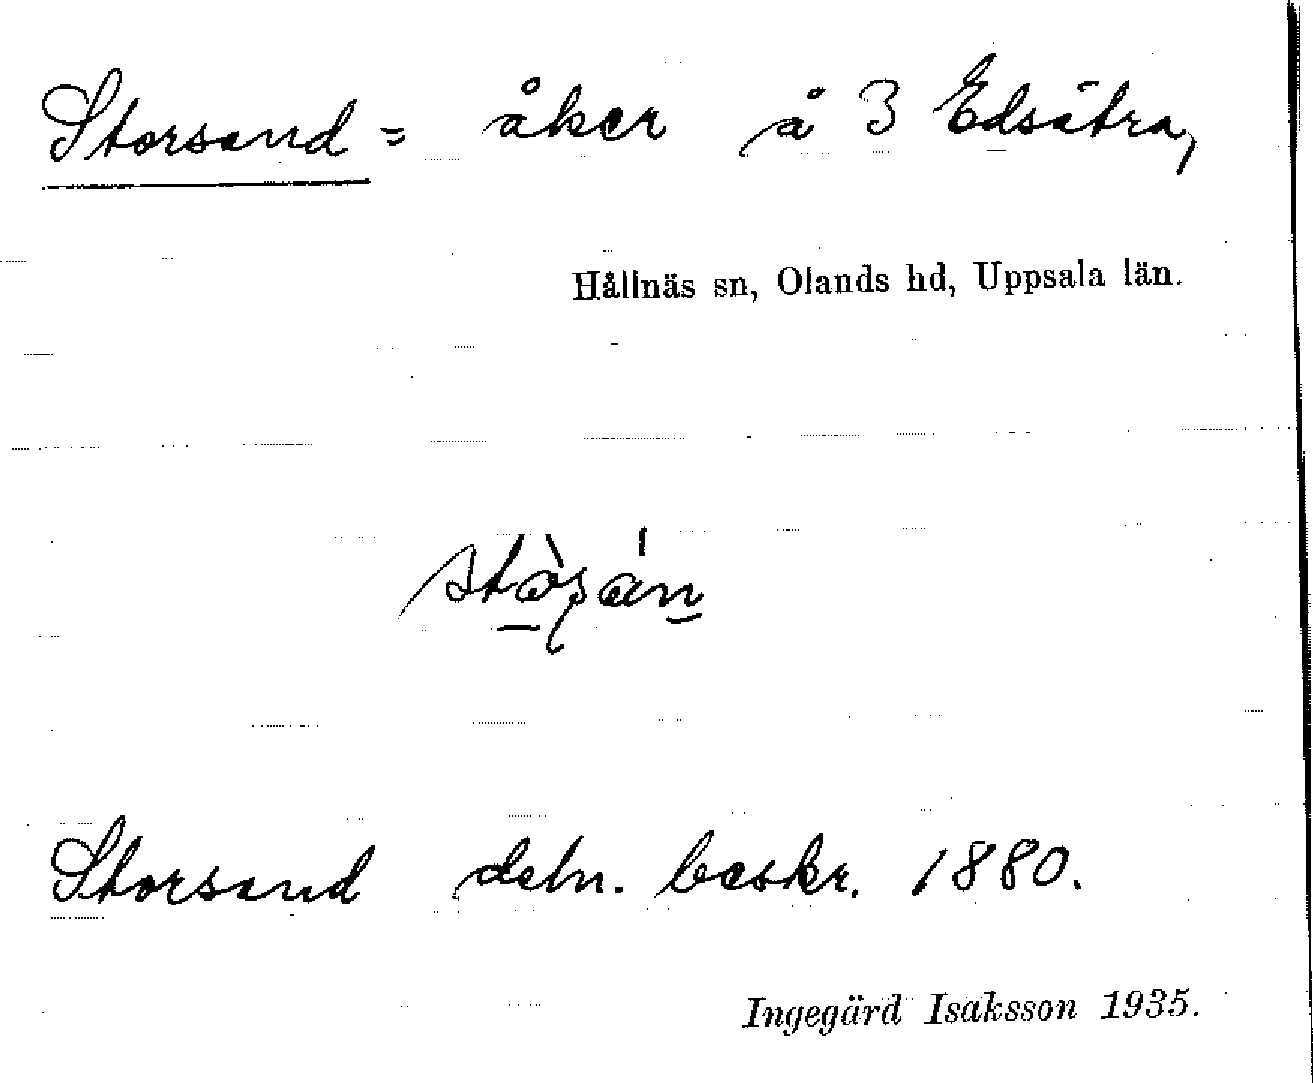 Storsand = åker å 3 Edsätra,
Hållnäs sn, Olands hd, Uppsala län.
Storsand deln. beskr. 1880.
Ingegärd Isaksson 1935.